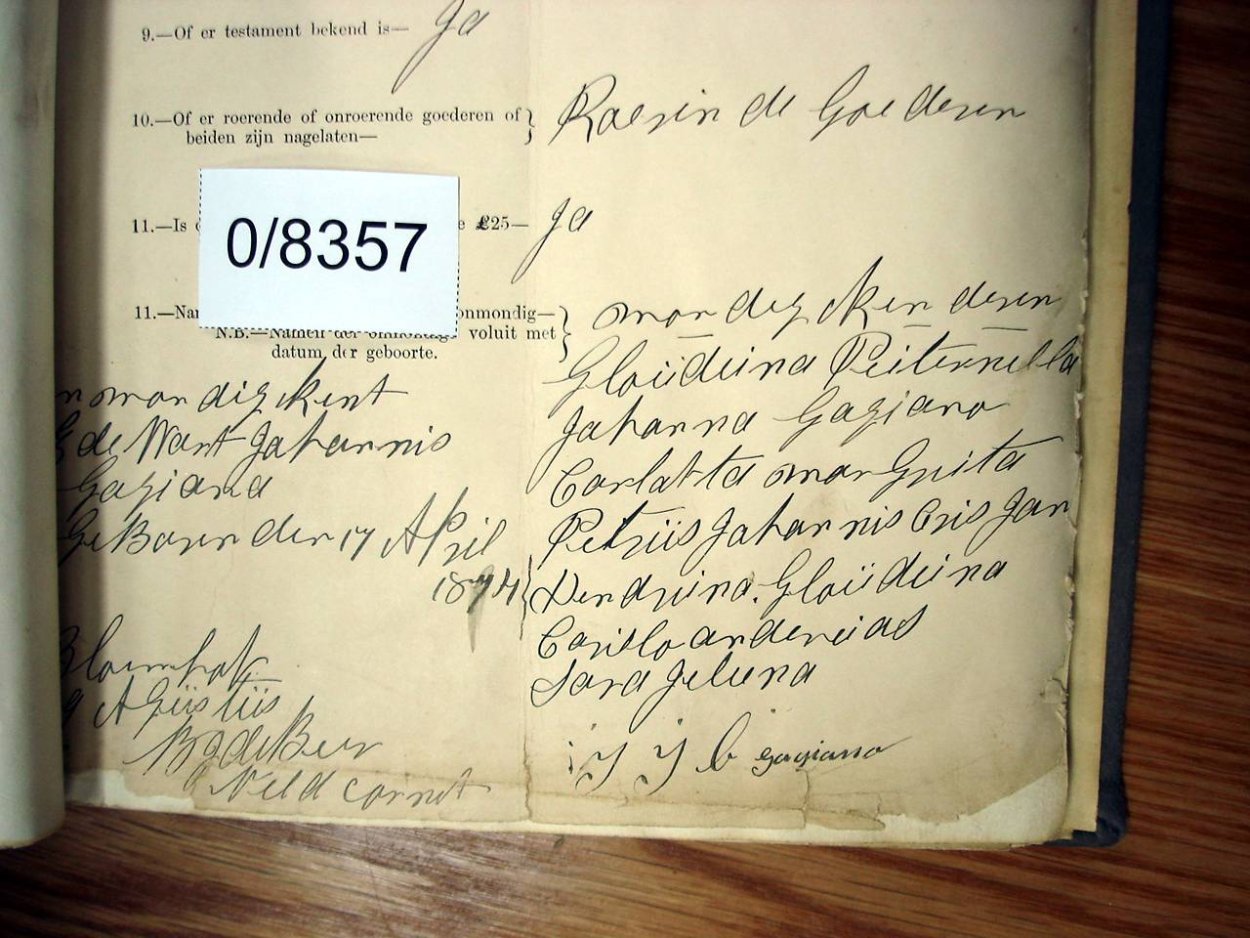 9.—Of er testament bekend is— Ja
10.—Of er roerende of onroerende goederen of
beiden zijn nagelaten—
Roerin de Goederen
0/8357
11.—Is £25— Ja
11.— onmondig—
N.B.—Namen der voluit met
datum der geboorte.
mondig Kinderen
Gloüdiina Peiternella
Johanna Gagiano
Carlatta mar Griita
Petrüs Johannis Cris Jan
Hendriina. Gloüdiina
Carillo andereias
Sara Jeliena
J J C Gagiano
nmondig Kent
de Want Johannis
Gagiano
Geboren den 17 April
1874
Bloemhof
Agüstüs
B J de Beer
Veld cornet